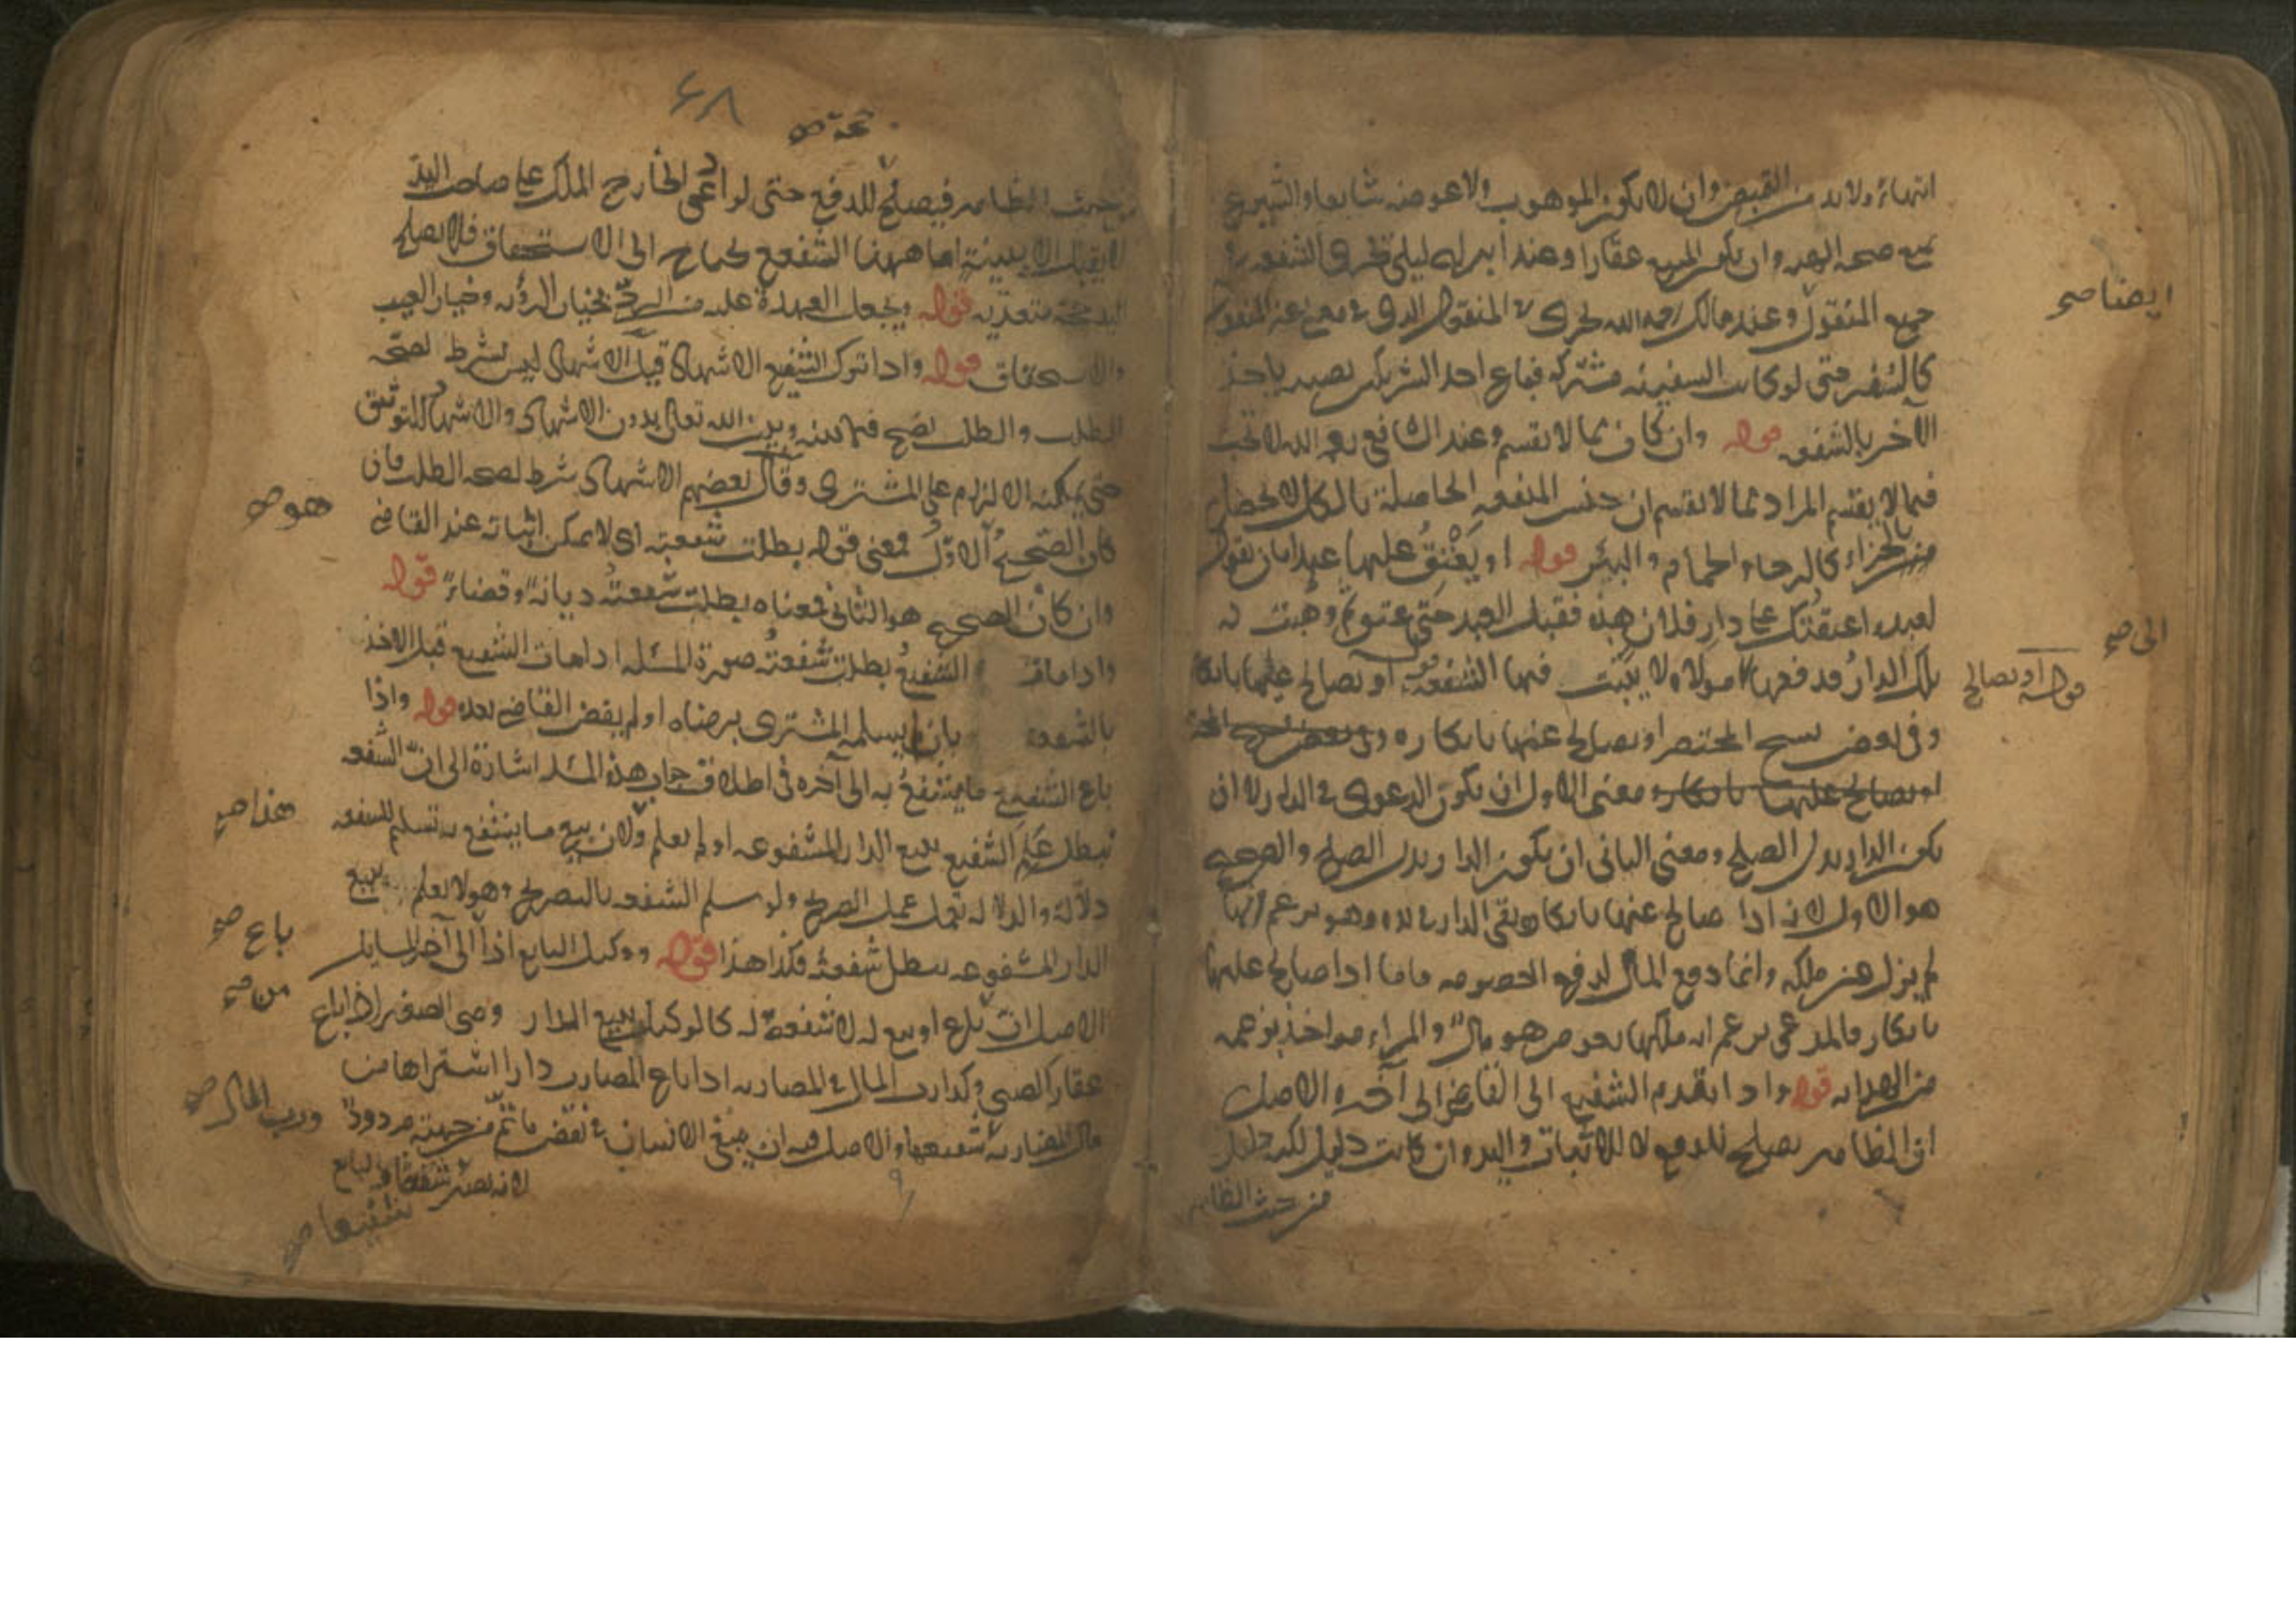 انتهاء ولابد من القبض وان لا يكون الموهوب ولا عوضه شايعا والشيوع
يمنع صحة الهبة وان يكون المبيع عقارا وعند ابن ابي ليلى تجري الشفعة في
جميع المنقول وعند مالك رحمه الله تجري في المنقول الذي في معنى غير المنقول
كالسفن حتى لو كانت السفينة مشتركة فباع احد الشريكين نصيبه ياخذ
الآخر بالشفعة قوله وان كان مما لا يقسم وعند الشافعي رحمه الله لا تجب
فيما لا يقسم المراد مما لا يقسم ان جنس المنفعة الحاصلة بالكل لا تحصل
بالجزاء كالرحا والحمام والبئر قوله او يعتق عليها عبدا بان يقول
لعبده اعتقتك على دار فلان هذه فقبل العبد حتى عتق ثم وهبت له
تلك الدار فدفعها مولاه لا يثبت فيها الشفعة او يصالح عليها بانكار
وفي بعض نسخ المختصر او يصالح عنها بانكاره وفي بعض نسخ
او يصالح عليها بانكار ومعنى الاول ان يكون الدعوى في الدار لا ان
يكون الدار بدل الصلح ومعنى الثاني ان يكون الدار بدل الصلح والصحيح
هو الاول لانه اذا صالح عنها بانكار بقى الدار في يده وهو يزعم انها
لم يزل عن ملكه وانما دفع المال لدفع الخصومة فاما اذا صالح عليها
بانكار فالمدعي يزعم انه ملكها بعوض هو مال والمراء مواخذ بزعمه
من الهداية قوله واذا تقدم الشفيع الى القاضي الى آخره الاصل
ان الظاهر يصلح للدفع لا للاثبات واليد وان كانت دليل لكنه دليل
من حيث الظاهر
ايضا صح
الى صح
قوله او يصالح
۶۸
حجة صح
من حيث الظاهر فيصلح للدفع حتى لو ادعى الخارج الملك على صاحب اليد
لا يقبل الا ببينة اما ههنا الشفيع يحتاج الى الاستحقاق فلا يصلح
اليد حجة متعدية قوله ويجعل العهدة عليه من الرد بخيار الرؤية وخيار العيب
والاستحقاق قوله واذا ترك الشفيع الاشهاد قيل الاشهاد ليس بشرط لصحة
الطلب والطلب يصح فيما بينه وبين الله تعالى بدون الاشهاد والاشهاد للتوثيق
حتى يمكنه الالزام على المشتري وقال بعضهم الاشهاد شرط لصحة الطلب فان
كان الصحيح الاول فمعنى قوله بطلت شفعته اي لا يمكن اثباته عند القاضي
وان كان الصحيح هو الثاني فمعناه بطلت شفعته ديانة وقضاء قوله
واذا مات الشفيع بطلت شفعته صورة المسئلة اذا مات الشفيع قبل الاخذ
بالشفعة بان لم يسلمه المشتري برضاه او لم يقض القاضي بعده قوله واذا
باع الشفيع ما يشفع به الى آخره في اطلاق جواب هذه المسئلة اشارة الى ان الشفعة
تبطل علم الشفيع ببيع الدار المشفوعة او لم يعلم ولان بيع ما يشفع به تسليم للشفعة
دلالة والدلالة تعمل عمل الصريح ولو سلم الشفعة بالتصريح وهو لا يعلم ببيع
الدار المشفوعة يبطل شفعته فكذا هذا قوله ووكيل البايع اذا الى آخر المسايل
الاصل ان باع او بيع له لا شفعة له كالوكيل ببيع الدار وصي الصغير اذا باع
عقار الصبي وكذا رب المال في المضاربة اذا باع المضارب دارا اشتراها من
مال المضاربة شفيعها والاصل فيه ان سعى الانسان في نقض ما تم من جهته مردود
لانه يصير شفيعا وبايع
هو صح
هذا صح
باع صح
من صح
ورب المال صح
شفيعها صح